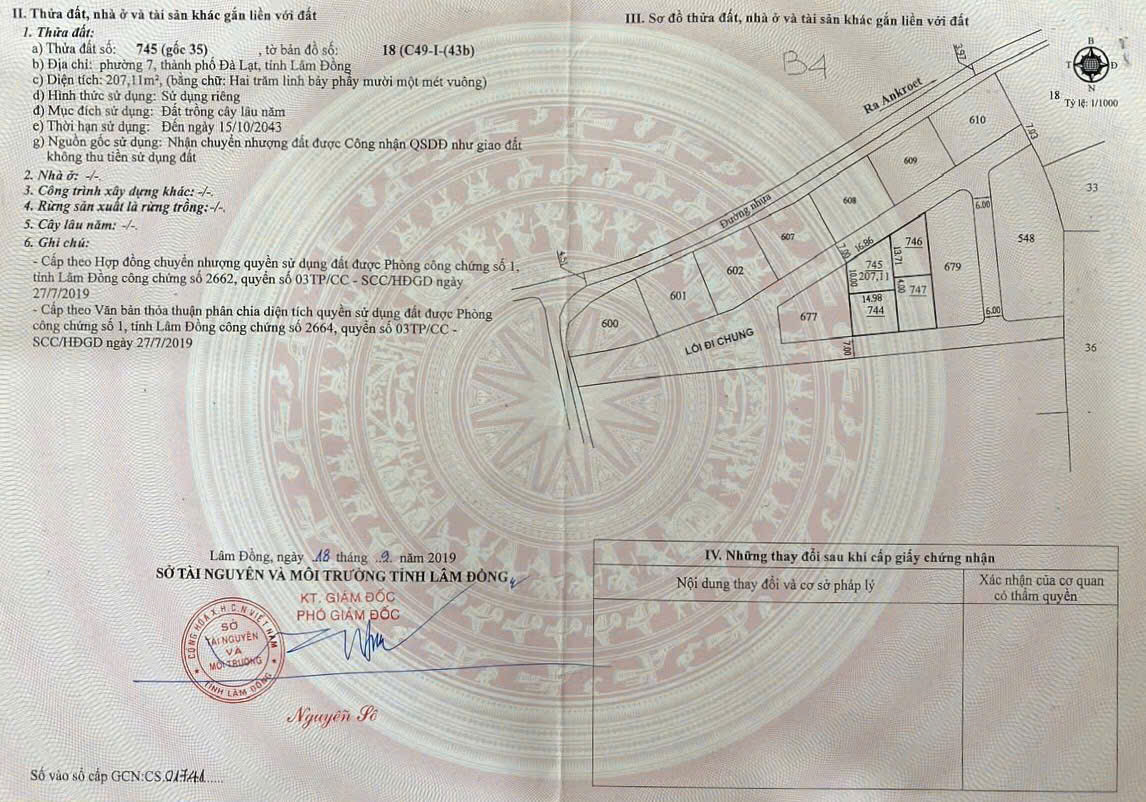 II. Thửa đất, nhà ở và tài sản khác gắn liền với đất
1. Thửa đất:
a) Thửa đất số: 745 (gốc 35) , tờ bản đồ số: 18 (C49-I-(43b)
b) Địa chỉ: phường 7, thành phố Đà Lạt, tỉnh Lâm Đồng
c) Diện tích: 207,11m², (bằng chữ: Hai trăm linh bảy phẩy mười một mét vuông)
d) Hình thức sử dụng: Sử dụng riêng
đ) Mục đích sử dụng: Đất trồng cây lâu năm
e) Thời hạn sử dụng: Đến ngày 15/10/2043
g) Nguồn gốc sử dụng: Nhận chuyển nhượng đất được Công nhận QSDĐ như giao đất
không thu tiền sử dụng đất
2. Nhà ở: -/-.
3. Công trình xây dựng khác: -/-.
4. Rừng sản xuất là rừng trồng:-/-.
5. Cây lâu năm: -/-.
6. Ghi chú:
- Cấp theo Hợp đồng chuyển nhượng quyền sử dụng đất được Phòng công chứng số 1,
tỉnh Lâm Đồng công chứng số 2662, quyển số 03TP/CC - SCC/HĐGD ngày
27/7/2019
- Cấp theo Văn bản thỏa thuận phân chia diện tích quyền sử dụng đất được Phòng
công chứng số 1, tỉnh Lâm Đồng công chứng số 2664, quyển số 03TP/CC -
SCC/HĐGD ngày 27/7/2019
Lâm Đồng, ngày 18 tháng 9 năm 2019
SỞ TÀI NGUYÊN VÀ MÔI TRƯỜNG TỈNH LÂM ĐỒNG
KT. GIÁM ĐỐC
PHÓ GIÁM ĐỐC
CỘNG HÒA X.H.C.N VIỆT NAM
SỞ
TÀI NGUYÊN
VÀ
MÔI TRƯỜNG
TỈNH LÂM ĐỒNG
Nguyễn Sô
Số vào sổ cấp GCN:CS.01741......
III. Sơ đồ thửa đất, nhà ở và tài sản khác gắn liền với đất
B4
B
T
Đ
N
18
Tỷ lệ: 1/1000
3.97
Ra Ankroet
610
7.03
609
33
608
Đường nhựa
6.00
607
548
7.00
16.86
746
4.51
602
745
13.71
679
207.11
10.00
4.00
747
601
14.98
744
677
6.00
600
LỐI ĐI CHUNG
7.00
36
IV. Những thay đổi sau khi cấp giấy chứng nhận
Nội dung thay đổi và cơ sở pháp lý
Xác nhận của cơ quan
có thẩm quyền